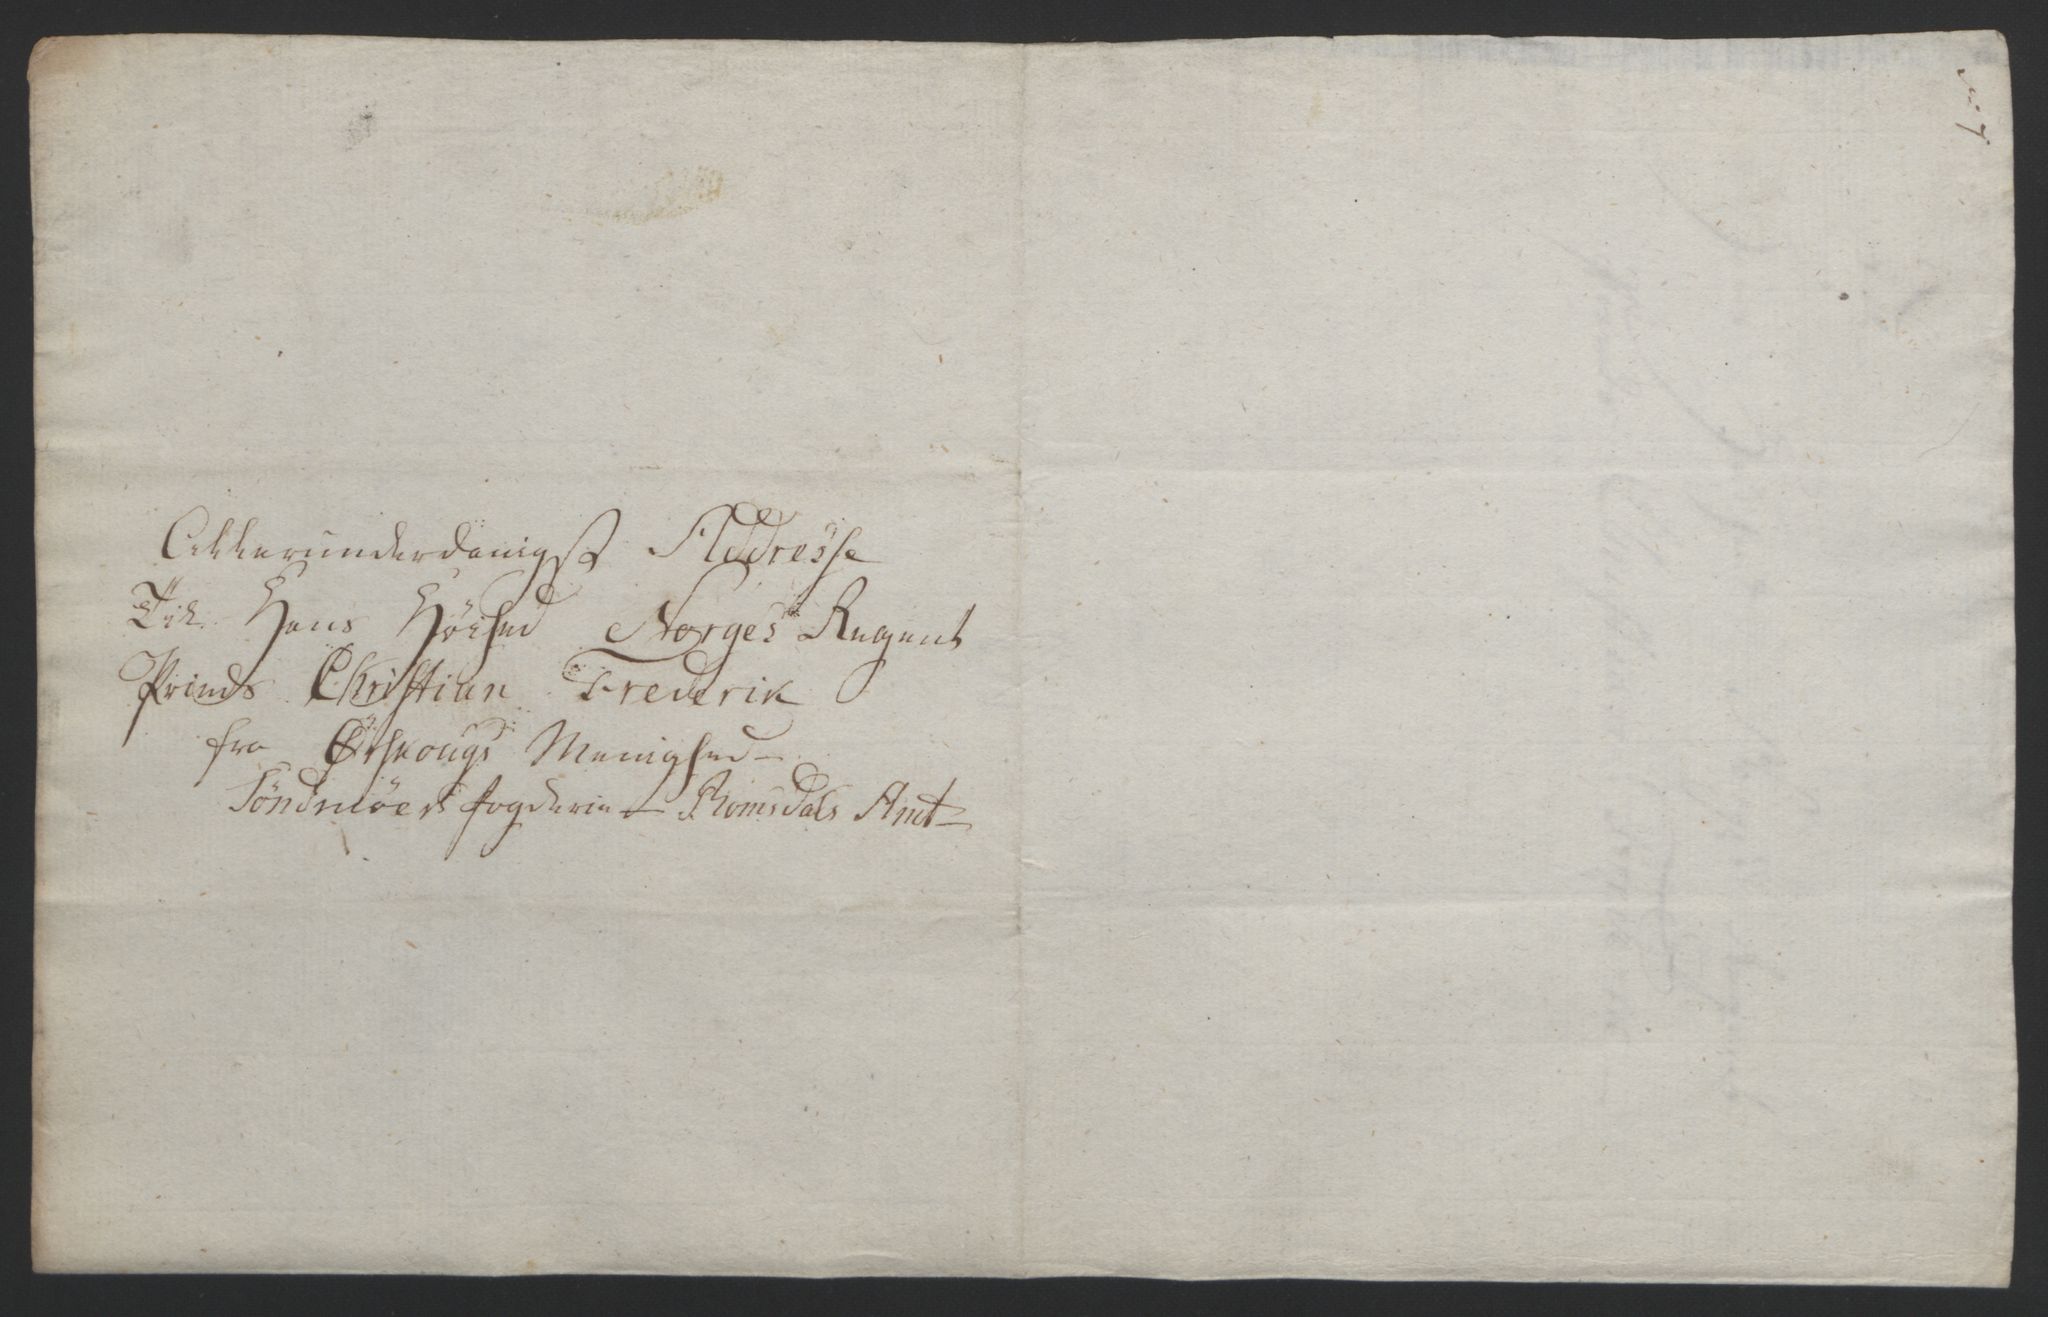 Allerunderdanigst Addresse
Til Hans Höihed Norges Regent
Prinds Christian Frederik
fra Ørskougs Menighed –
Söndmöers fogderie – Romsdals Amt –
No 7